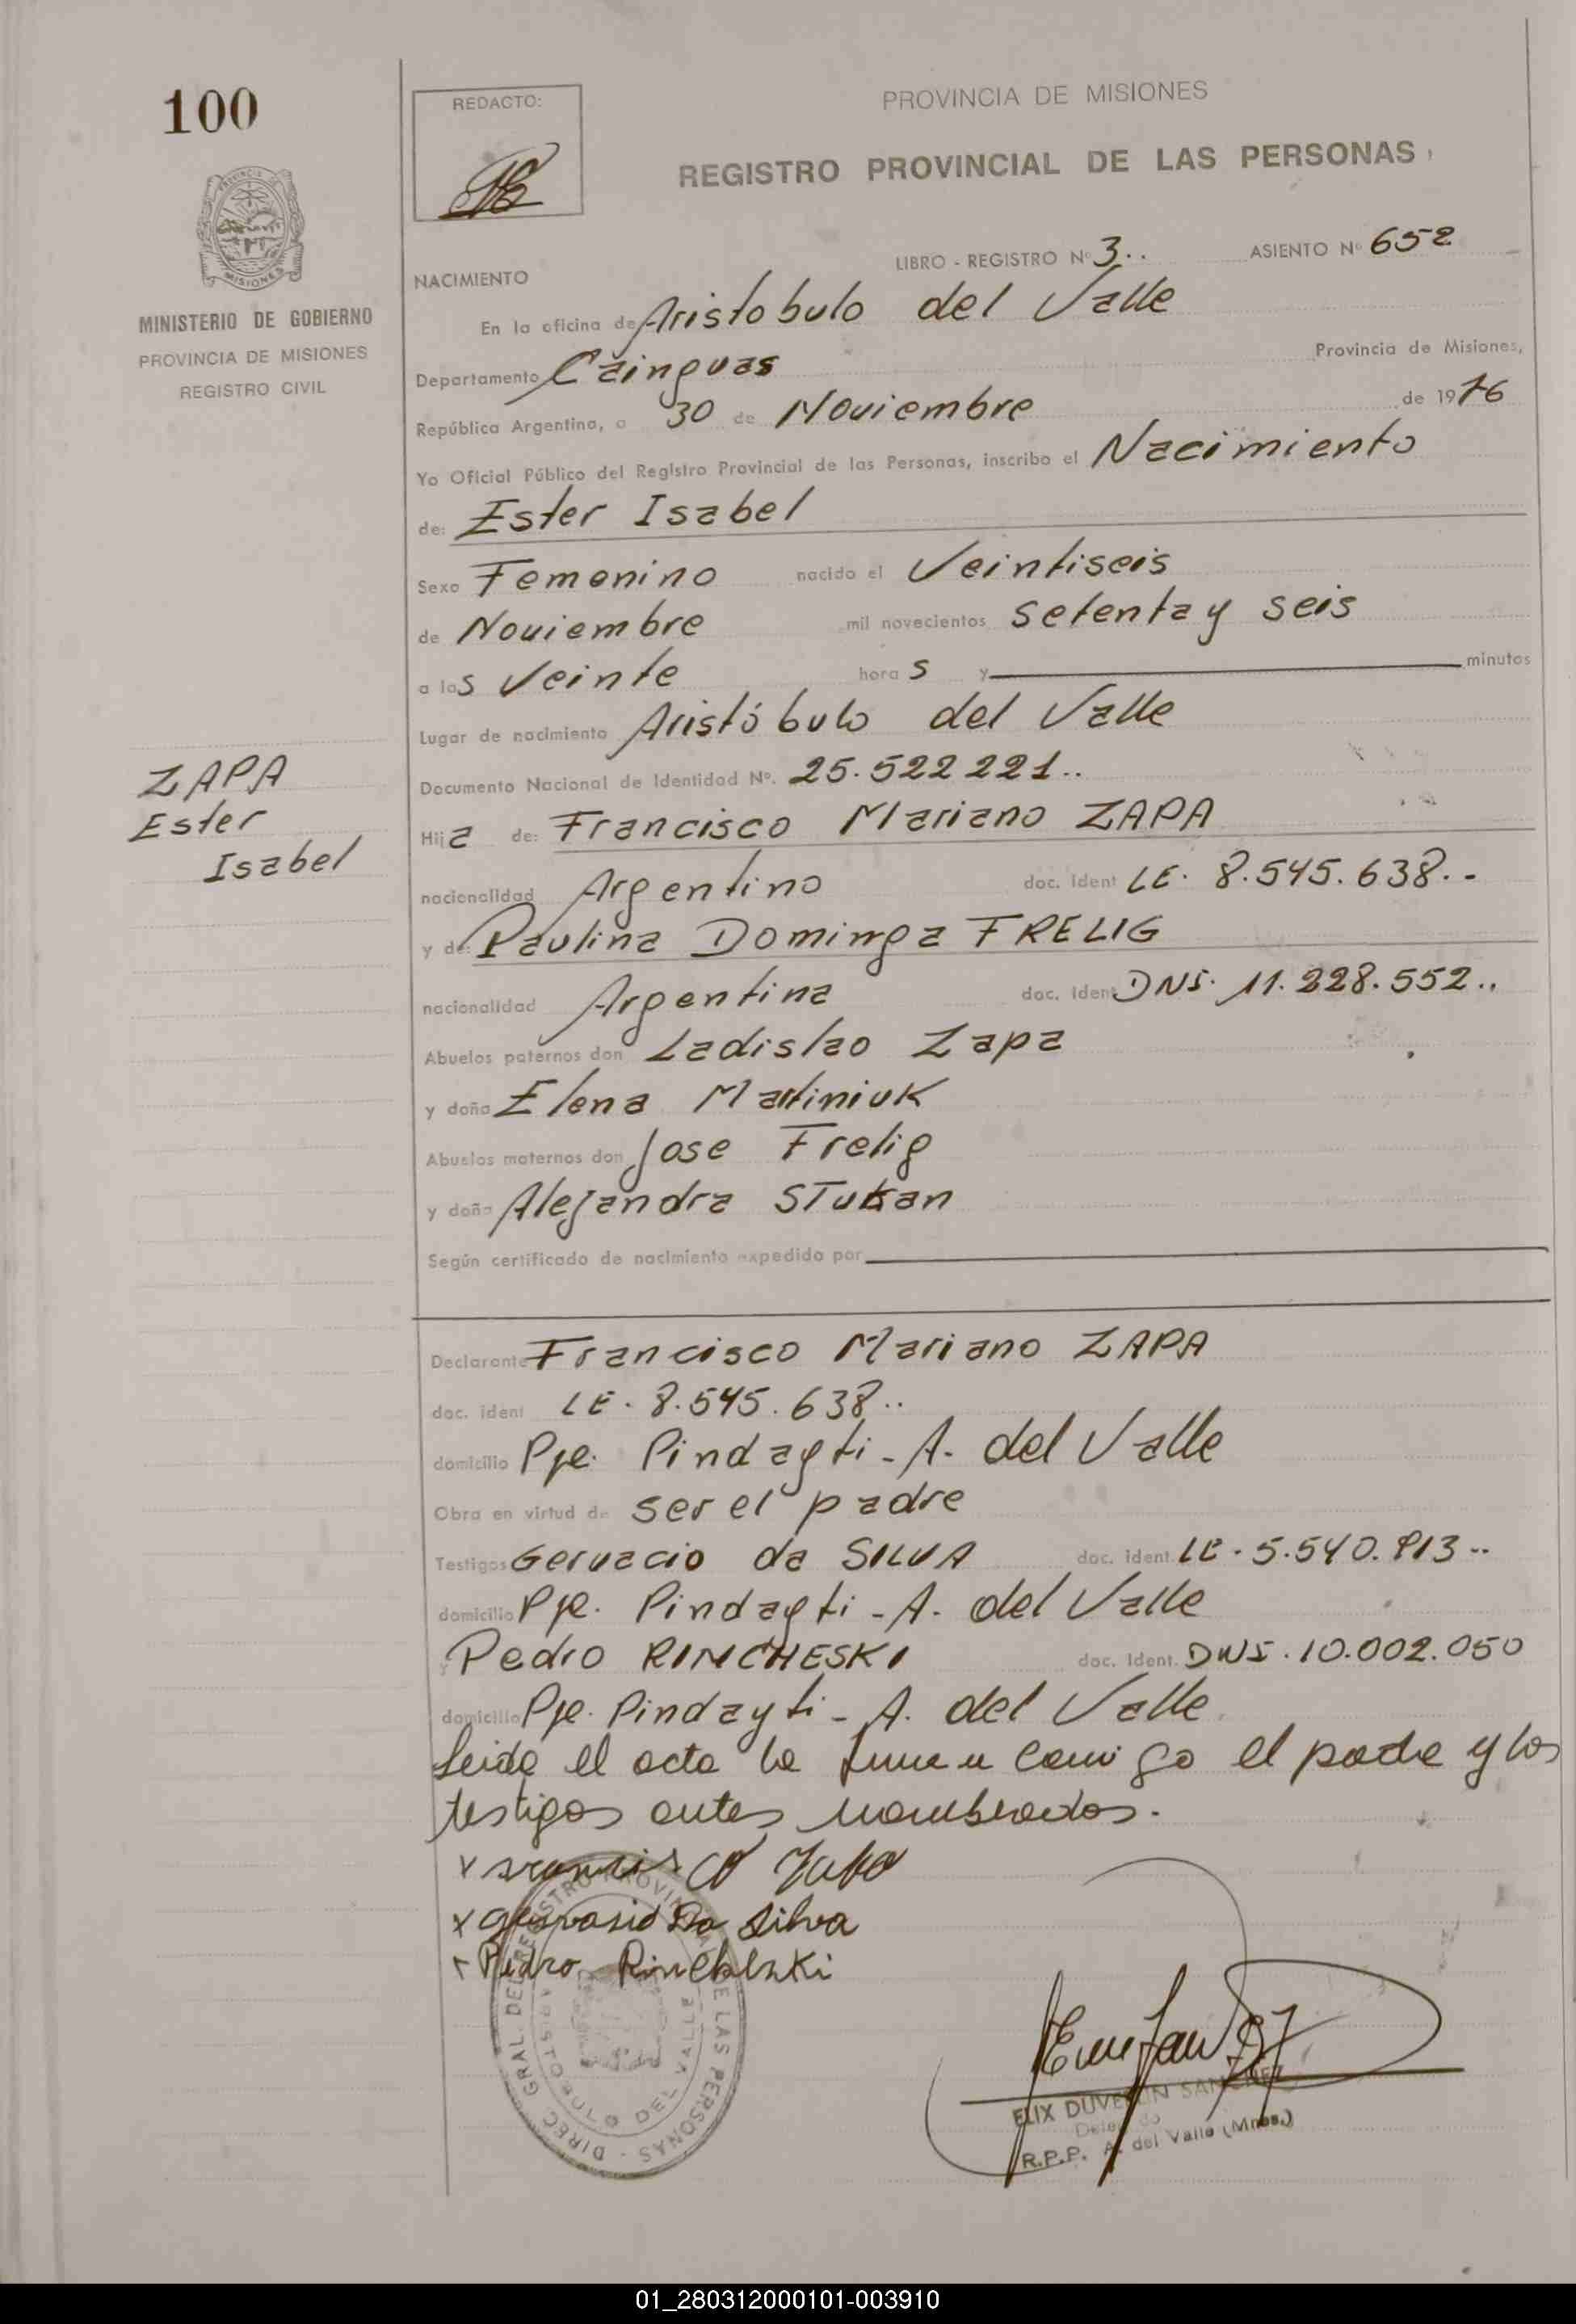 100
REDACTO:
PROVINCIA DE MISIONES
REGISTRO PROVINCIAL DE LAS PERSONAS
MISIONES
MINISTERIO DE GOBIERNO
PROVINCIA DE MISIONES
REGISTRO CIVIL
LIBRO - REGISTRO Nº 3.. ASIENTO Nº 652
NACIMIENTO
En la oficina de Aristobulo del Valle
Departamento Cainguas Provincia de Misiones,
República Argentina, a 30 de Noviembre de 1976
Yo Oficial Público del Registro Provincial de las Personas, inscribo el Nacimiento
de: Ester Isabel
Sexo Femenino nacido el Veintiseis
de Noviembre mil novecientos setenta y seis
a las Veinte horas y minutos
Lugar de nacimiento Aristóbulo del Valle
Documento Nacional de Identidad Nº. 25.522.221..
ZAPA
Ester
Isabel
Hija de: Francisco Mariano ZAPA
nacionalidad Argentino doc. Ident LE. 8.545.638..
y de: Paulina Dominga FRELIG
nacionalidad Argentina doc. Ident DNI. 11.228.552..
Abuelos paternos don Ladislao Zapa
y doña Elena Martiniuk
Abuelos maternos don Jose Frelig
y doña Alejandra STukan
Según certificado de nacimiento expedido por
Declarante Francisco Mariano ZAPA
doc. ident LE. 8.545.638..
domicilio Pje. Pindayti - A. del Valle
Obra en virtud de ser el padre
Testigos Gervacio da SILVA doc. ident. LE. 5.540.813..
domicilio Pje. Pindayti - A. del Valle
y Pedro RINCHESKI doc. Ident. DNI. 10.002.050
domicilio Pje. Pindayti - A. del Valle
Leida el acta la firman conmigo el padre y los
testigos antes nombrados.
x
x Gervasio Da Silva
x Pedro Rincheski
DIREC. GRAL. DEL REGISTRO PROVINCIAL DE LAS PERSONAS
ARISTOBULO DEL VALLE
ELIX DUVE SANCHEZ
Delegado
R.P.P. A. del Valle (Mnes.)
01_280312000101-003910